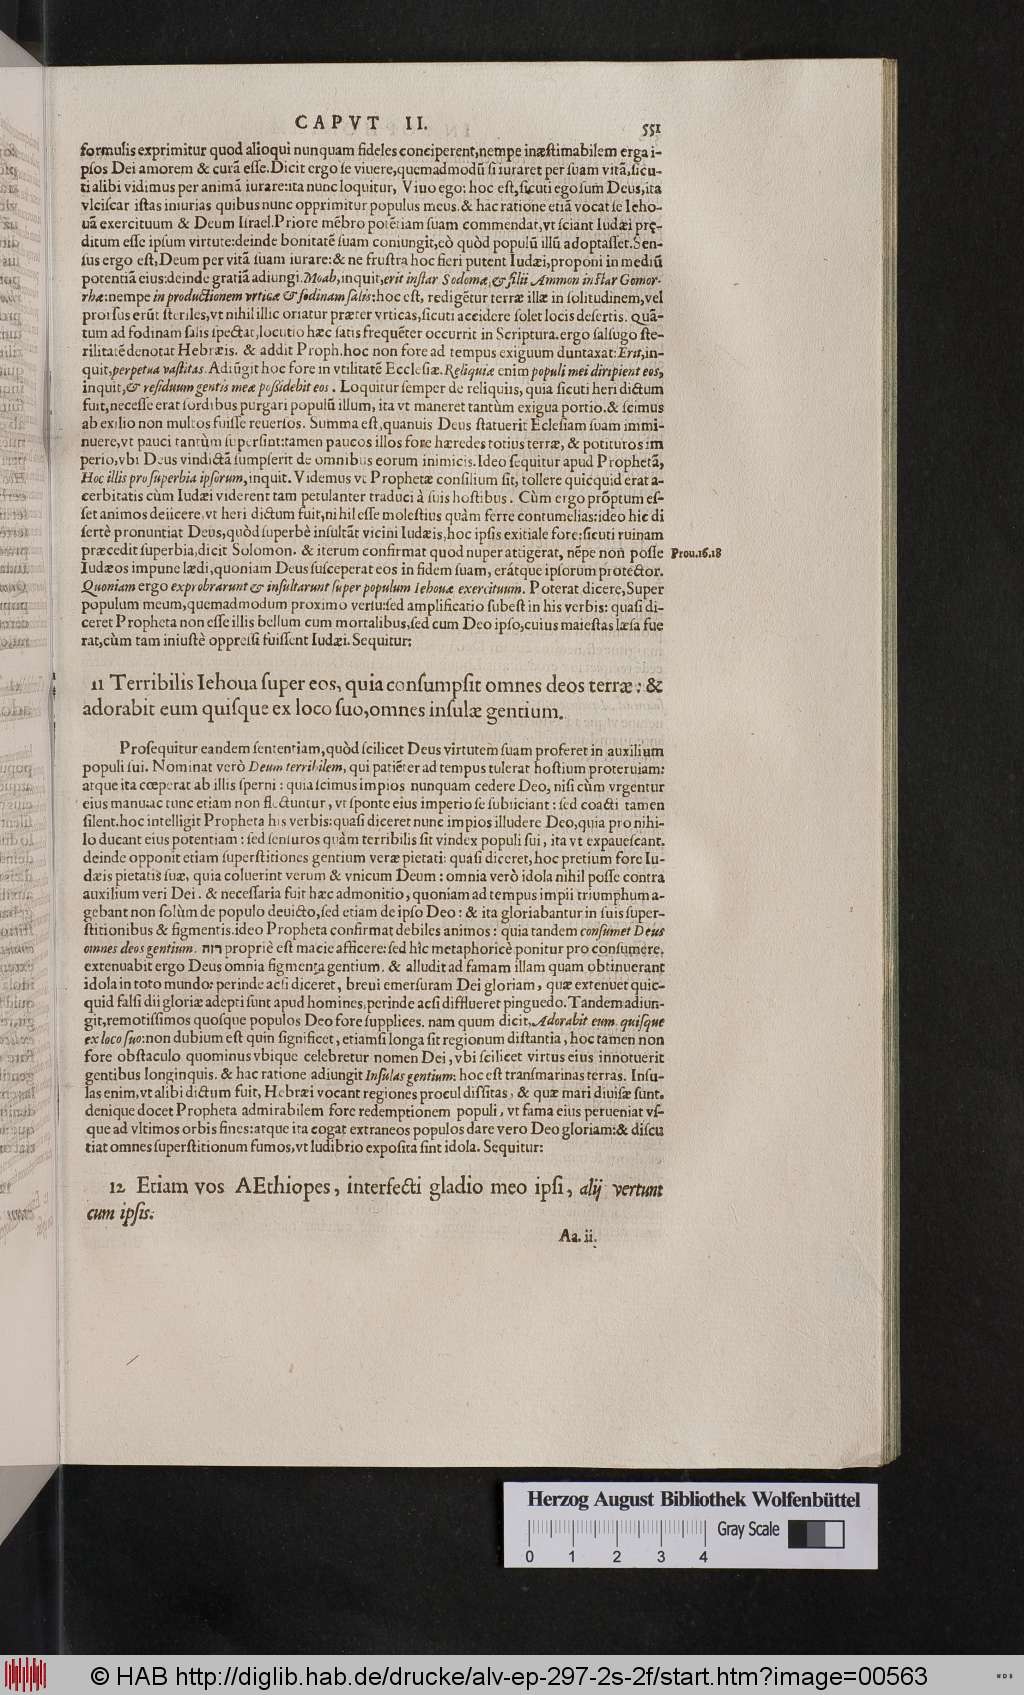 CAPVT II. 551
formulis exprimitur quod alioqui nunquam fideles conciperent, nempe inæstimabilem erga i-
psos Dei amorem & curã esse. Dicit ergo se viuere, quemadmodũ si iuraret per suam vitã, sicu-
ti alibi vidimus per animã iurare: ita nunc loquitur, Viuo ego: hoc est, sicuti ego sum Deus, ita
vlciscar istas iniurias quibus nunc opprimitur populus meus. & hac ratione etiã vocat se Ieho-
uã exercituum & Deum Israel. Priore mẽbro potẽtiam suam commendat, vt sciant Iudæi prę-
ditum esse ipsum virtute: deinde bonitatẽ suam coniungit, eò quòd populũ illũ adoptasset. Sen-
sus ergo est, Deum per vitã suam iurare: & ne frustra hoc fieri putent Iudæi, proponi in mediũ
potentiã eius: deinde gratiã adiungi. Moab, inquit, erit instar Sodomæ, & filii Ammon instar Gomor-
rhæ: nempe in productionem vrticæ & fodinam salis: hoc est, redigẽtur terræ illæ in solitudinem, vel
prorsus erũt steriles, vt nihil illic oriatur præter vrticas, sicuti accidere solet locis desertis. Quã-
tum ad fodinam salis spectat, locutio hæc satis frequẽter occurrit in Scriptura. ergo salsugo ste-
rilitatẽ denotat Hebræis. & addit Proph. hoc non fore ad tempus exiguum duntaxat: Erit, in-
quit, perpetua vastitas. Adiũgit hoc fore in vtilitatẽ Ecclesiæ. Reliquiæ enim populi mei diripient eos,
inquit, & residuum gentis meæ possidebit eos. Loquitur semper de reliquiis, quia sicuti heri dictum
fuit, necesse erat sordibus purgari populũ illum, ita vt maneret tantùm exigua portio. & scimus
ab exilio non multos fuisse reuersos. Summa est, quanuis Deus statuerit Eclesiam suam immi-
nuere, vt pauci tantùm supersint: tamen paucos illos fore hæredes totius terræ, & potituros im
perio, vbi Deus vindictã sumpserit de omnibus eorum inimicis. Ideo sequitur apud Prophetã,
Hoc illis pro superbia ipsorum, inquit. Videmus vt Prophetæ consilium sit, tollere quicquid erat a-
cerbitatis cùm Iudæi viderent tam petulanter traduci à suis hostibus. Cùm ergo prõptum es-
set animos deiicere, vt heri dictum fuit, nihil esse molestius quàm ferre contumelias: ideo hic di
sertè pronuntiat Deus, quòd superbè insultãt vicini Iudæis, hoc ipsis exitiale fore: sicuti ruinam
præcedit superbia, dicit Solomon. & iterum confirmat quod nuper attigerat, nẽpe non posse
Prou.16.18
Iudæos impune lædi, quoniam Deus susceperat eos in fidem suam, erátque ipsorum protector.
Quoniam ergo exprobrarunt & insultarunt super populum Iehouæ exercituum. Poterat dicere, Super
populum meum, quemadmodum proximo versu: sed amplificatio subest in his verbis: quasi di-
ceret Propheta non esse illis bellum cum mortalibus, sed cum Deo ipso, cuius maiestas læsa fue
rat, cùm tam iniustè oppressi fuissent Iudæi. Sequitur:
11 Terribilis Iehoua super eos, quia consumpsit omnes deos terræ: &
adorabit eum quisque ex loco suo, omnes insulæ gentium.
Prosequitur eandem sententiam, quòd scilicet Deus virtutem suam proferet in auxilium
populi sui. Nominat verò Deum terribilem, qui patiẽter ad tempus tulerat hostium proteruiam:
atque ita cœperat ab illis sperni: quia scimus impios nunquam cedere Deo, nisi cùm vrgentur
eius manu: ac tunc etiam non flectuntur, vt sponte eius imperio se subiiciant: sed coacti tamen
silent. hoc intelligit Propheta his verbis: quasi diceret nunc impios illudere Deo, quia pro nihi-
lo ducant eius potentiam: sed sensuros quàm terribilis sit vindex populi sui, ita vt expauescant.
deinde opponit etiam superstitiones gentium veræ pietati: quasi diceret, hoc pretium fore Iu-
dæis pietatis suæ, quia coluerint verum & vnicum Deum: omnia verò idola nihil posse contra
auxilium veri Dei. & necessaria fuit hæc admonitio, quoniam ad tempus impii triumphum a-
gebant non solùm de populo deuicto, sed etiam de ipso Deo: & ita gloriabantur in suis super-
stitionibus & figmentis. ideo Propheta confirmat debiles animos: quia tandem consumet Deus
omnes deos gentium. רזה propriè est macie afficere: sed hîc metaphoricè ponitur pro consumere.
extenuabit ergo Deus omnia figmenta gentium. & alludit ad famam illam quam obtinuerant
idola in toto mundo: perinde acsi diceret, breui emersuram Dei gloriam, quæ extenuet quic-
quid falsi dii gloriæ adepti sunt apud homines, perinde acsi difflueret pinguedo. Tandem adiun-
git, remotissimos quosque populos Deo fore supplices. nam quum dicit, Adorabit eum quisque
ex loco suo: non dubium est quin significet, etiamsi longa sit regionum distantia, hoc tamen non
fore obstaculo quominus vbique celebretur nomen Dei, vbi scilicet virtus eius innotuerit
gentibus longinquis. & hac ratione adiungit Insulas gentium: hoc est transmarinas terras. Insu-
las enim, vt alibi dictum fuit, Hebræi vocant regiones procul dissitas, & quæ mari diuisæ sunt.
denique docet Propheta admirabilem fore redemptionem populi, vt fama eius perueniat vs-
que ad vltimos orbis fines: atque ita cogat extraneos populos dare vero Deo gloriam: & discu
tiat omnes superstitionum fumos, vt ludibrio exposita sint idola. Sequitur:
12 Etiam vos AEthiopes, interfecti gladio meo ipsi, alij vertunt
cum ipsis.
Aa.ii.
Herzog August Bibliothek Wolfenbüttel
Gray Scale
0 1 2 3 4
© HAB http://diglib.hab.de/drucke/alv-ep-297-2s-2f/start.htm?image=00563